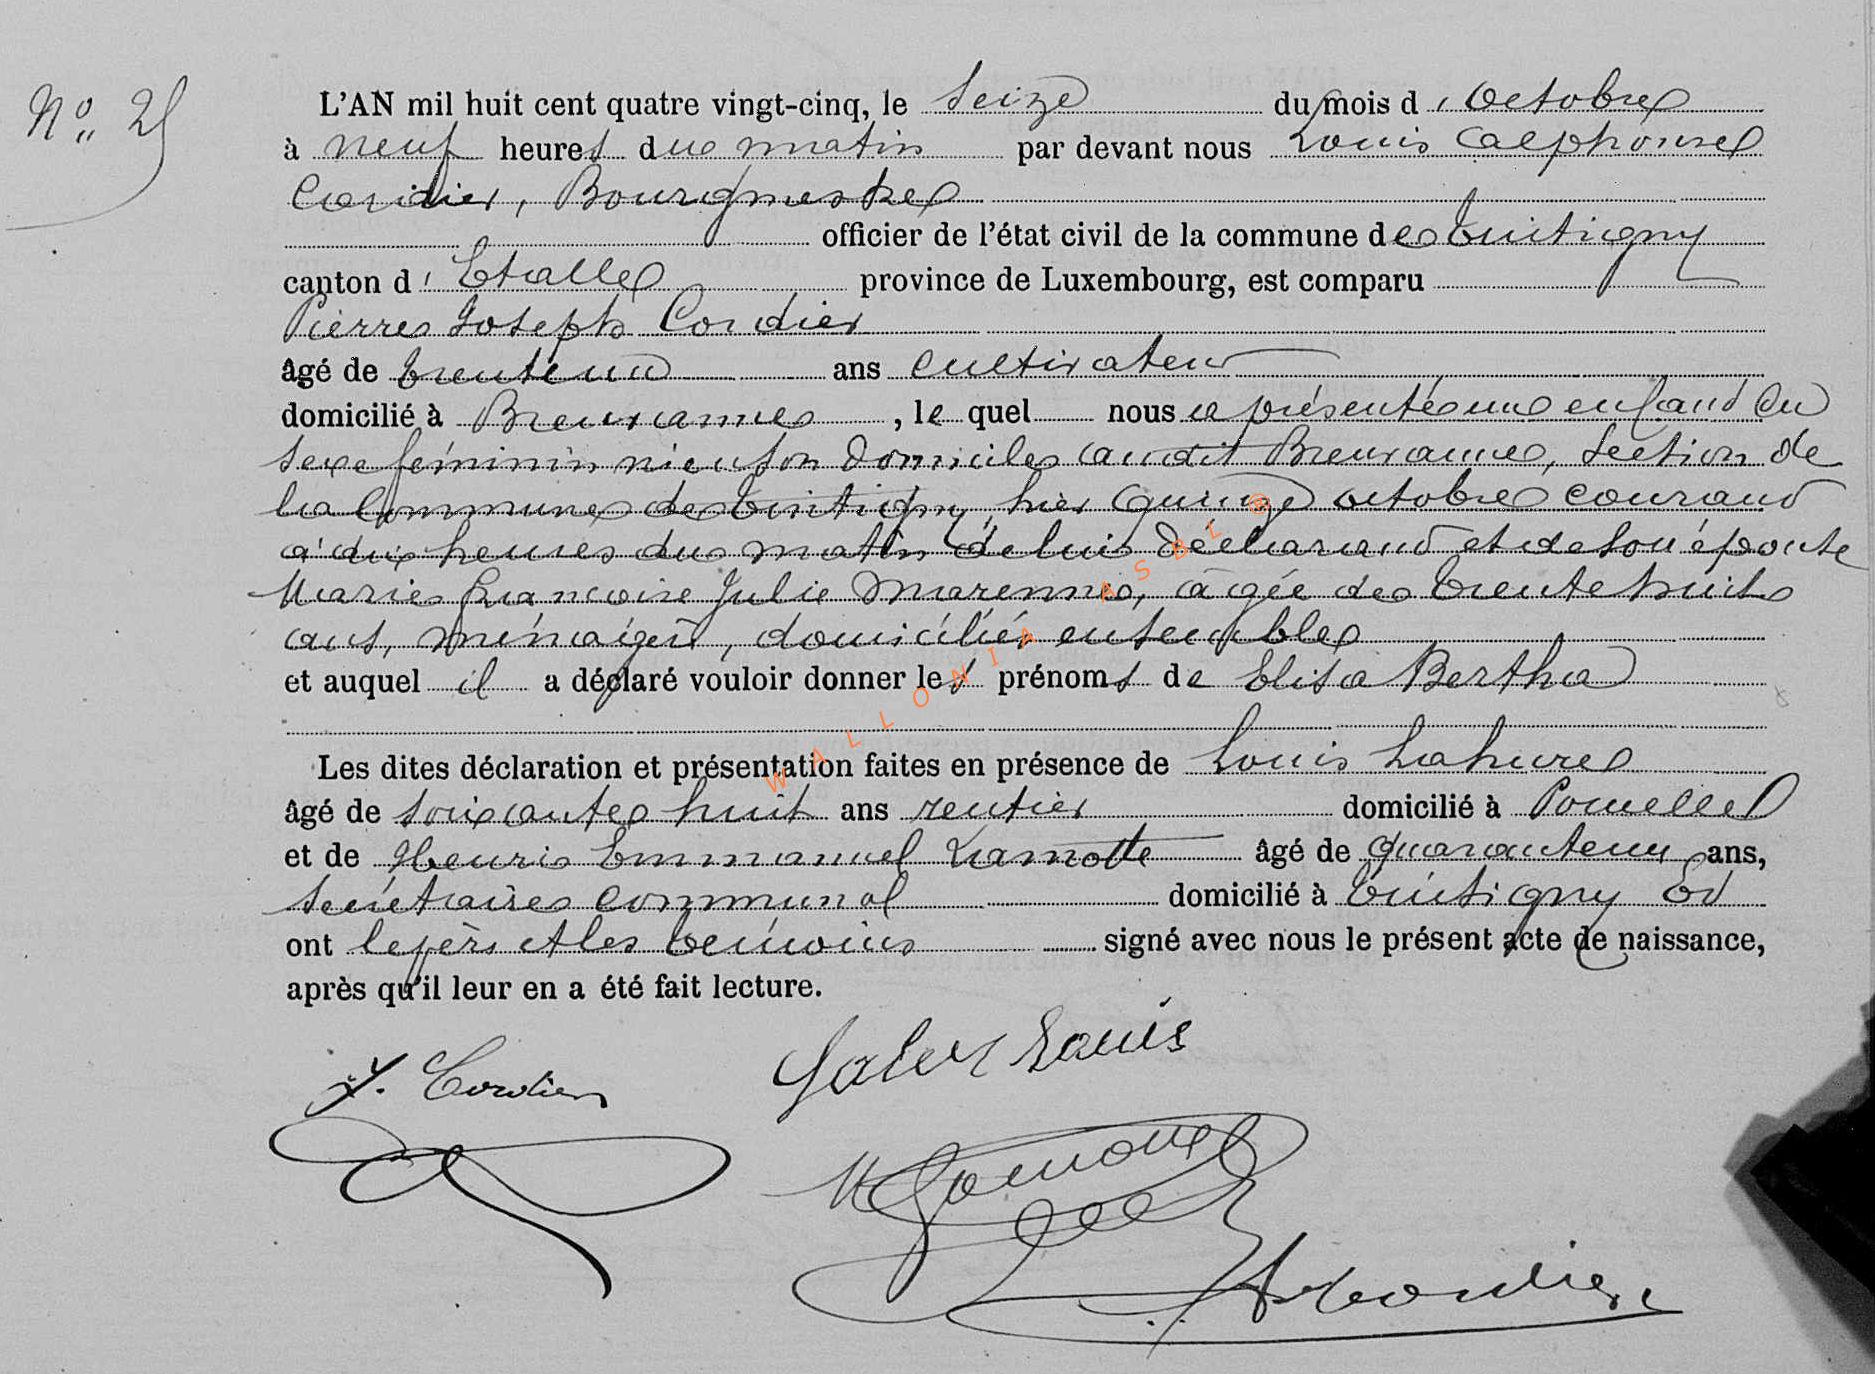 N° 25
L'AN mil huit cent quatre vingt-cinq, le seize du mois d'octobre
à neuf heures du matin par devant nous Louis Alphonse
Cordier, Bourgmestre
officier de l'état civil de la commune de Tintigny
canton d'Etalle province de Luxembourg, est comparu
Pierre Joseph Cordier
âgé de trente un ans cultivateur
domicilié à Breuvanne, le quel nous a présenté un enfant du
sexe féminin né en son domicile audit Breuvanne, section de
la Commune de Tintigny, hier quinze octobre courant
à dix heures du matin de lui déclarant et de son épouse
Marie Françoise Julie Marenne, âgée de trente huit
ans, ménagère, domiciliés ensemble
et auquel il a déclaré vouloir donner les prénoms de Elisa Bertha
Les dites déclaration et présentation faites en présence de Louis Lahure
âgé de soixante huit ans rentier domicilié à Poncelle
et de Henri Emmanuel Lamotte âgé de quarante un ans,
secrétaire communal domicilié à Tintigny Et
ont le père et les témoins signé avec nous le présent acte de naissance,
après qu'il leur en a été fait lecture.
J. Cordier
Louis
Cordier
WALLONIA ASBL ©